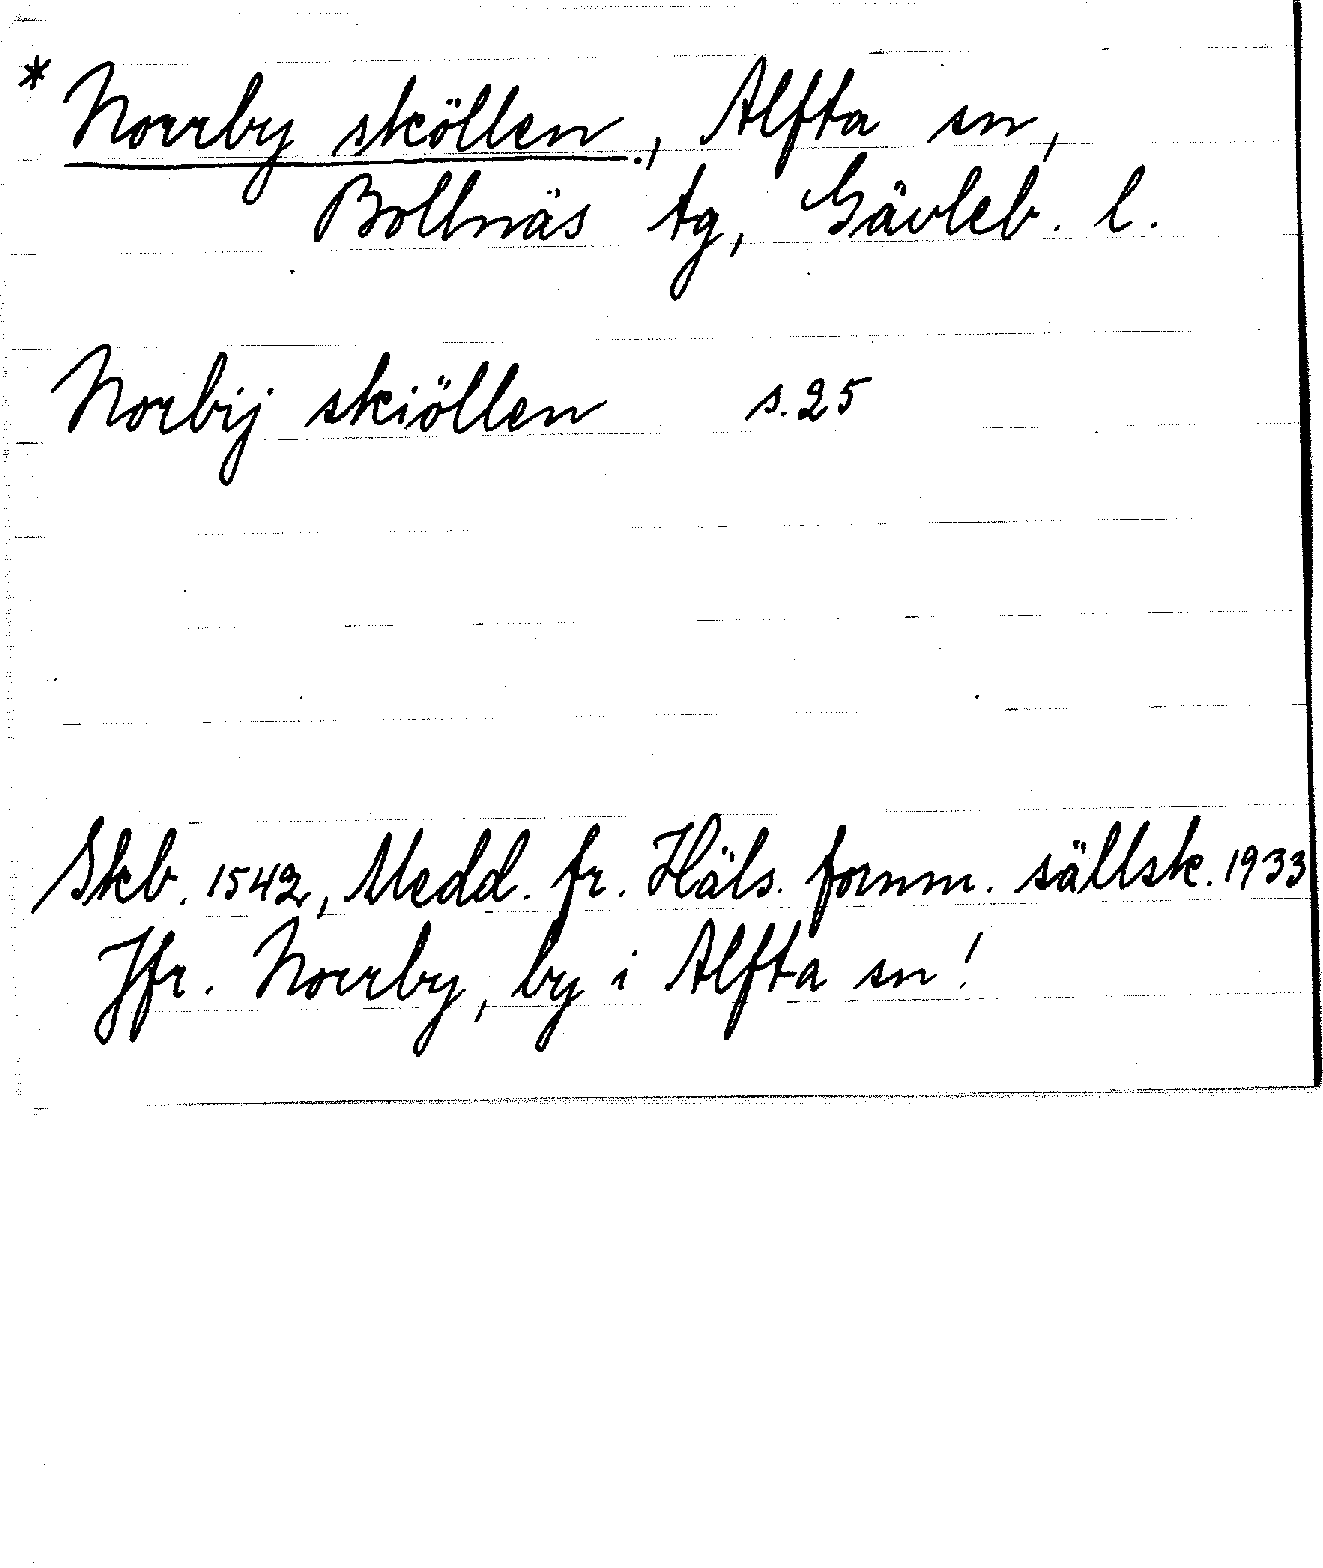 * Norrby sköllen., Alfta sn,
Bollnäs tg, Gävleb. l.
Norbij skiöllen s. 25
Skb. 1542, Medd. fr. Häls. fornm. sällsk. 1933
Jfr. Norrby, by i Alfta sn!